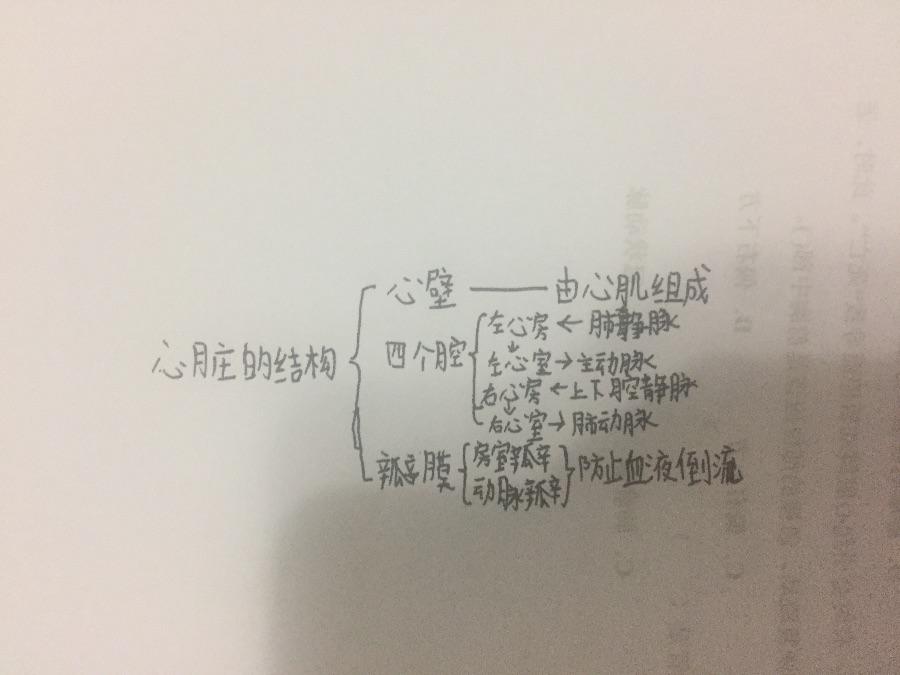 心脏的结构
心壁 —— 由心肌组成
四个腔
左心房 ← 肺静脉
↓
左心室 → 主动脉
右心房 ← 上下腔静脉
↓
右心室 → 肺动脉
瓣膜
房室瓣
动脉瓣
防止血液倒流